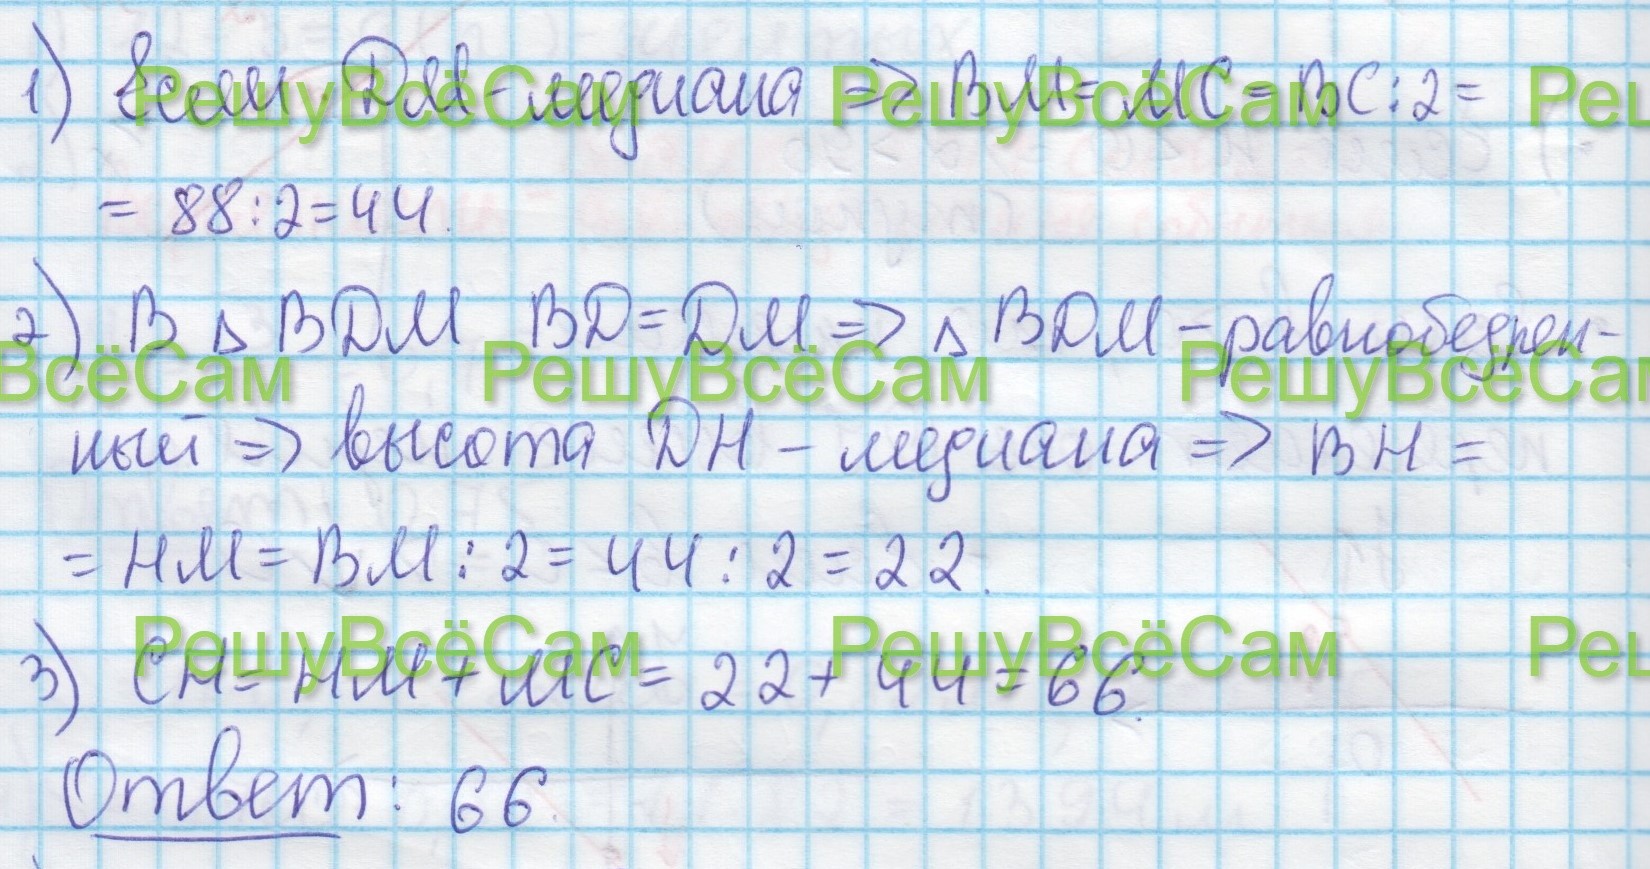 1) Если DM - медиана => BM = MC = BC : 2 =
= 88 : 2 = 44.
2) В Δ BDM BD = DM => Δ BDM - равнобедрен-
ный => высота DH - медиана => BH =
= HM = BM : 2 = 44 : 2 = 22.
3) CH = HM + MC = 22 + 44 = 66.
Ответ: 66
РешуВсёСам РешуВсёСам Реш
ВсёСам РешуВсёСам РешуВсёСам
РешуВсёСам РешуВсёСам Реш